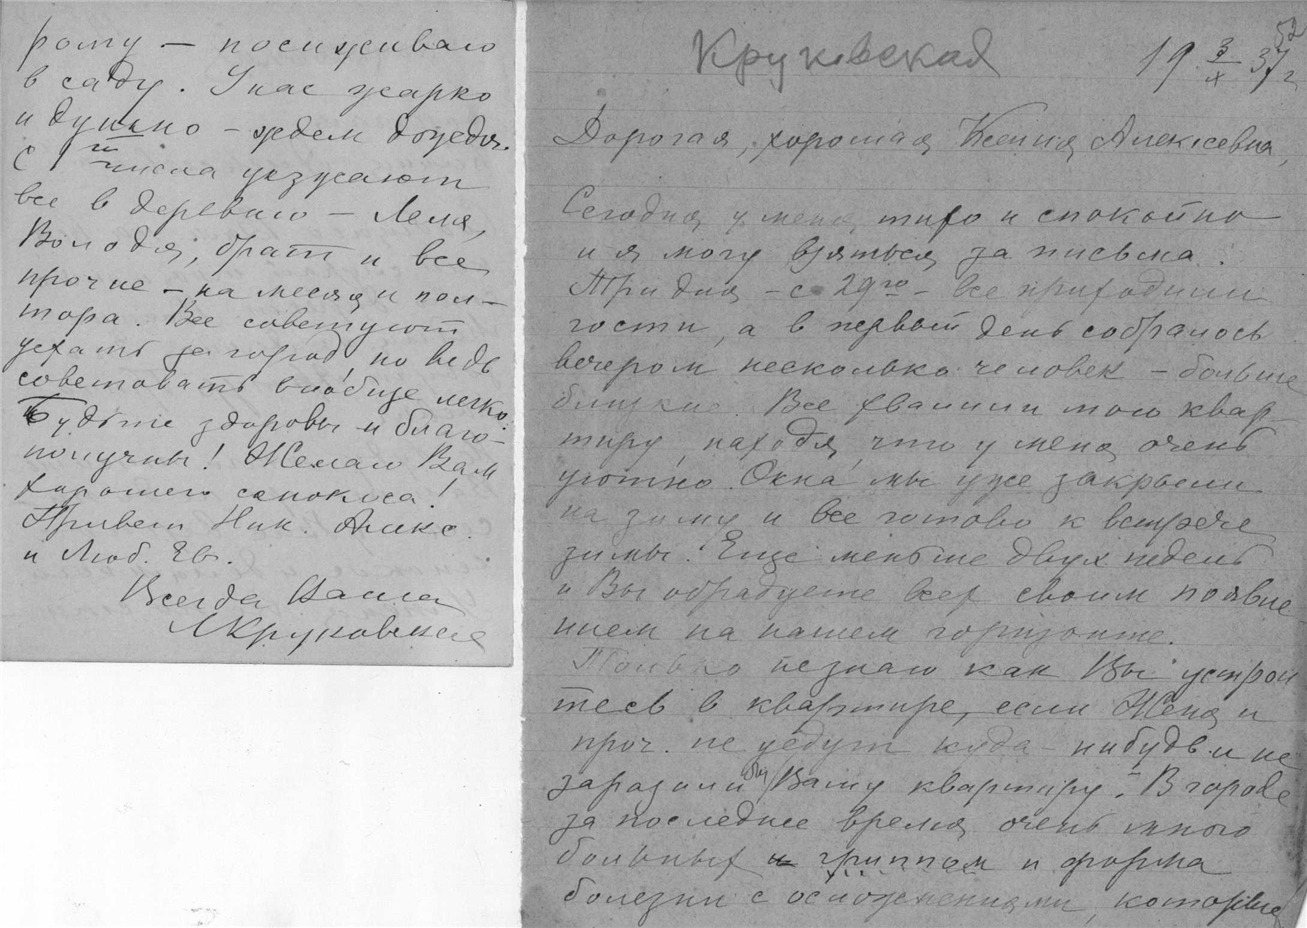 рому — посиживаю
в саду. У нас жарко
и душно — ждем дождя.
С числа уезжают
все в деревню — Леля,
Володя, брат и все
прочие — на месяц и пол-
тора. Все советуют
уехать за город, но ведь
советовать вообще легко.
Будьте здоровы и благо-
получны! Желаю Вам
хорошего сенокоса!
Привет Ник. Алекс.
и Люб. Ев.
Всегда Ваша
Круковская
52
Круковская
19 3/IX 37 г
Дорогая, хорошая Ксения Алексеевна,
Сегодня у меня тихо и спокойно
и я могу взяться за письма.
Три дня — с 29го — все приходили
гости, а в первый день собралось
вечером несколько человек — больше
близкие. Все хвалили мою квар-
тиру, находя, что у меня очень
уютно. Окна мы уже закрыли
на зиму и все готово к встрече
зимы. Еще меньше двух недель
и Вы обрадуете всех своим появле
нием на нашем горизонте.
Только не знаю как Вы устрои
тесь в квартире, если Женя и
проч. не уедут куда-нибудь и не
заразили бы Вашу квартиру. В городе
за последнее время очень много
больных гриппом и форма
болезни с осложнениями, которые